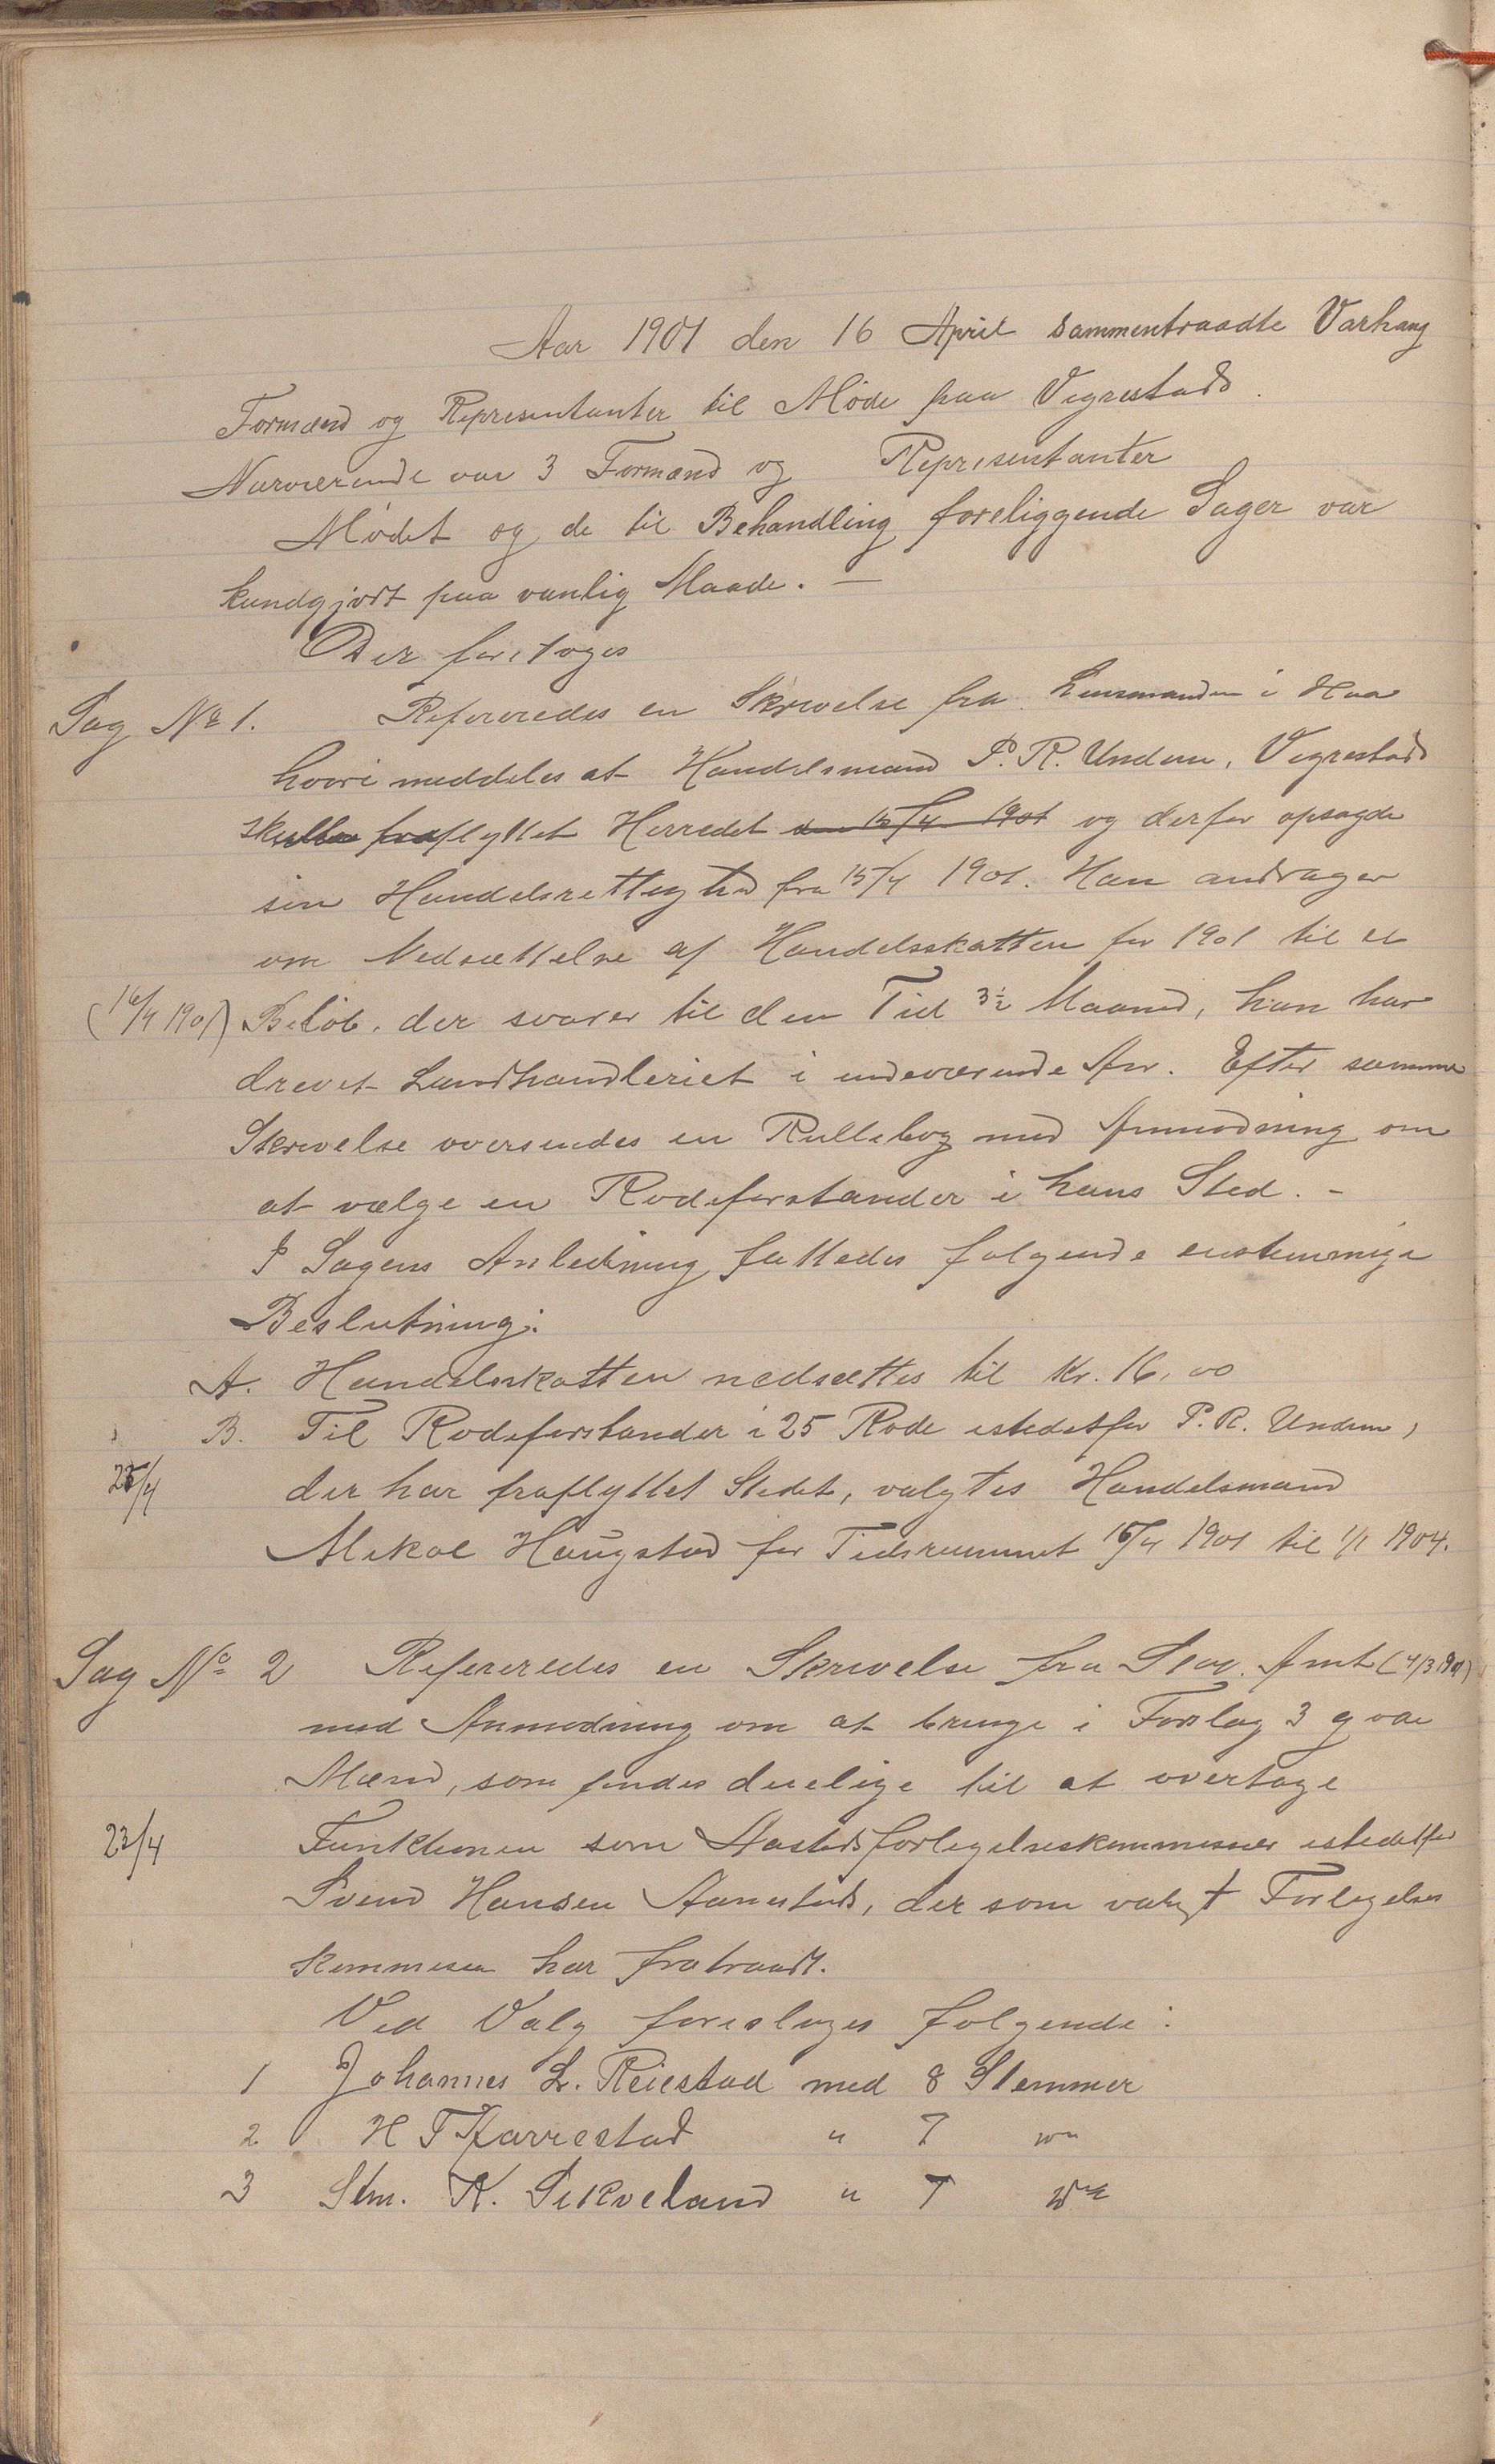 Aar 1901 den 16 April sammentraadte Varhaug
Formænd og Repræsentanter til Møde paa Vigrestad.
Nærværende var 3 Formænd og Repræsentanter
Mødet og de til Behandling foreliggende Sager var
kundgjort paa vanlig Maade. —
Der foretoges
Sag No 1. Refereredes en Skrivelse fra Lensmanden i Haa
hvori meddeles at Handelsmand P. R. Undem, Vigrestad
skulde fraflyttet Herredet den 15/4 1901 og derfor opsagde
sin Handelsrettighed fra 15/4 1901. Han andrager
om Nedsættelse af Handelsskatten for 1901 til et
(16/4 1901) Beløb, der svarer til den Tid 3½ Maaned, han har
drevet Landhandleriet i indeværende Aar. Efter samme
Skrivelse oversendes en Rullebog med Anmodning om
at vælge en Rodeforstander i hans Sted. –
I Sagens Anledning fattedes følgende enstemmige
Beslutning:
A. Handelsskatten nedsættes til Kr. 16,00
B. Til Rodeforstander i 25 Rode istedetfor P. R. Undem,
25/4 der har fraflyttet Stedet, valgtes Handelsmand
Mikal Haugstad for Tidsrummet 15/4 1901 til 1/1 1904.
Sag No 2 Refereredes en Skrivelse fra Stav. Amt (4/3 1901)
med Anmodning om at bringe i Forslag 3 gode
Mænd, som findes duelige til at overtage
23/4 Funktionen som Aastedsforligelseskommissær istedetfor
Svend Hansen Aanestad, der som valgt Forligelses
kommisær har fratraadt.
Ved Valg foresloges følgende:
1 Johannes L. Reiestad med 8 Stemmer
2 H T Varrestad " 7 "
3 Slm. K. Sikveland " 7